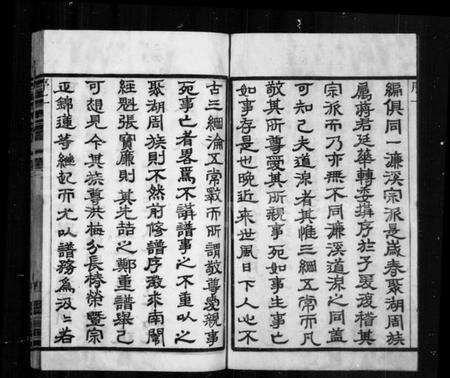 編俱同一濂溪宗派是歲春聚湖周族
屬蔣君廷華轉委瑱序於予爰渡稽其
宗派而乃亦無不同濂溪道源之同蓋
可知已夫道源者其惟三綱五常而凡
敬其所尊愛其所親事死如生事亡
如事存是也晚近來世風日下人心不
古三綱淪五常斁而所謂敬尊愛親事
死事亡者畧焉不講譜事之不重以之
聚湖周族則不然前修譜序敢來南闈
經魁張寶廉則其先詰之鄭重譜舉已
可想見今其族尊洪梅分長梅榮暨宗
正錦道等繼起而尤以譜務為汲汲若